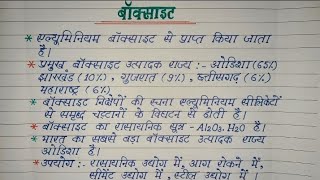 बॉक्साइट
* एल्यूमिनियम बॉक्साइट से प्राप्त किया जाता
है।
* प्रमुख बॉक्साइट उत्पादक राज्य :- ओडिशा (65%)
झारखंड (10%) , गुजरात (9%) , छत्तीसगढ़ (6%)
महाराष्ट्र (6%)
* बॉक्साइट निक्षेपों की रचना एल्यूमिनियम सीलिकेटों
से समृद्ध चट्टानों के विघटन से होती है।
* बॉक्साइट का रासायनिक सूत्र - Al₂O₃.H₂O है।
* भारत का सबसे बड़ा बॉक्साइट उत्पादक राज्य
ओडिशा है।
* उपयोग :- रासायनिक उद्योग में, आग रोकने में,
सीमेंट उद्योग में , स्टील उद्योग में।